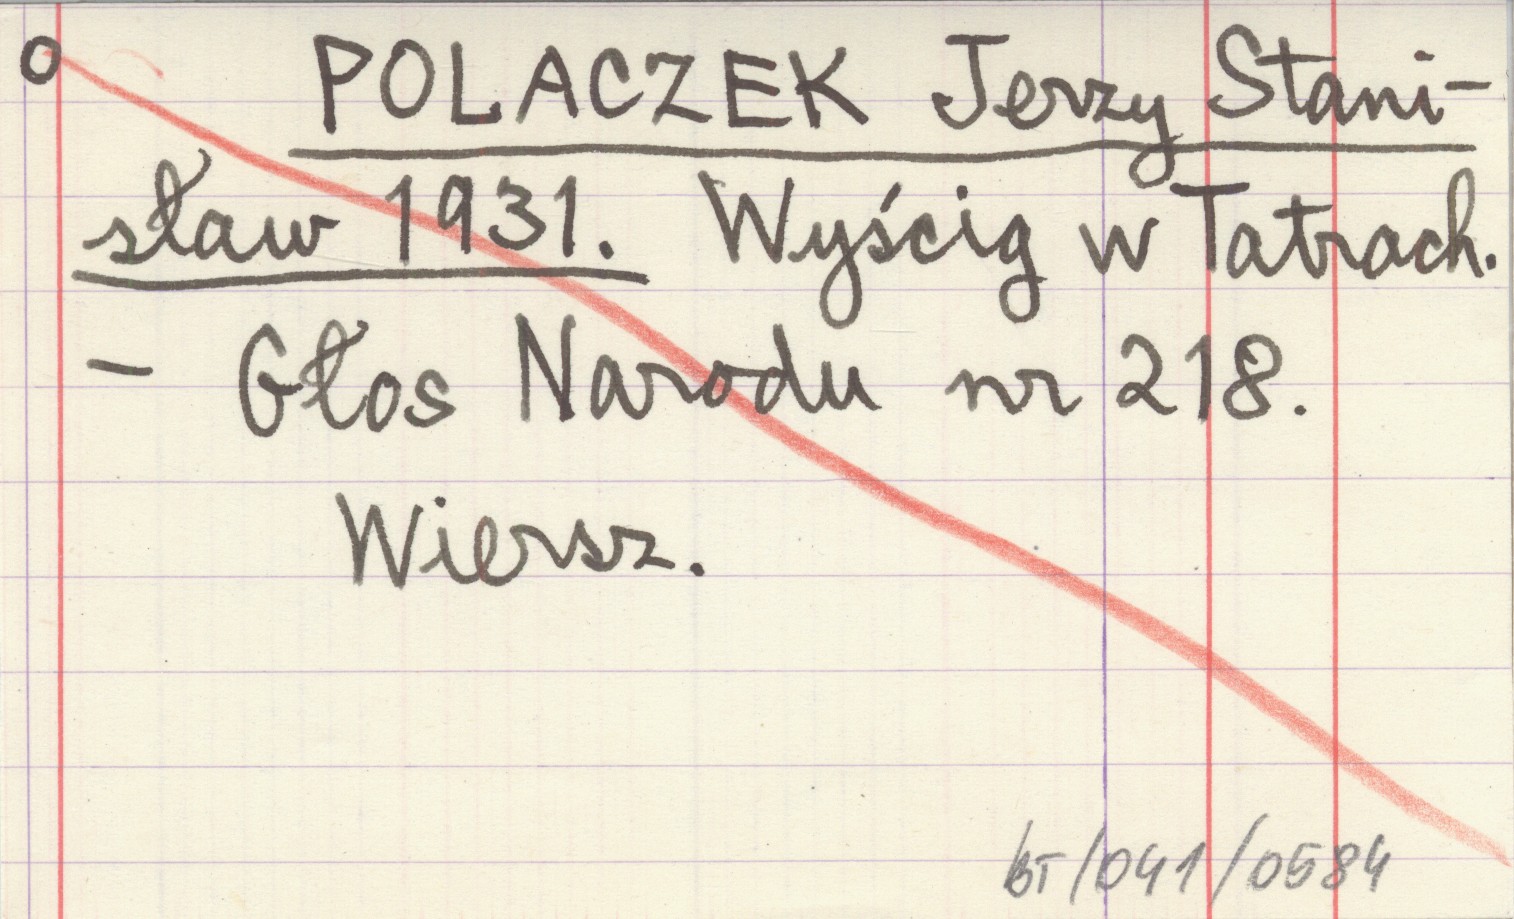 O POLACZEK Jerzy Stani-
sław 1931. Wyścig w Tatrach.
- Głos Narodu nr 218.
Wiersz.
BT/041/0584